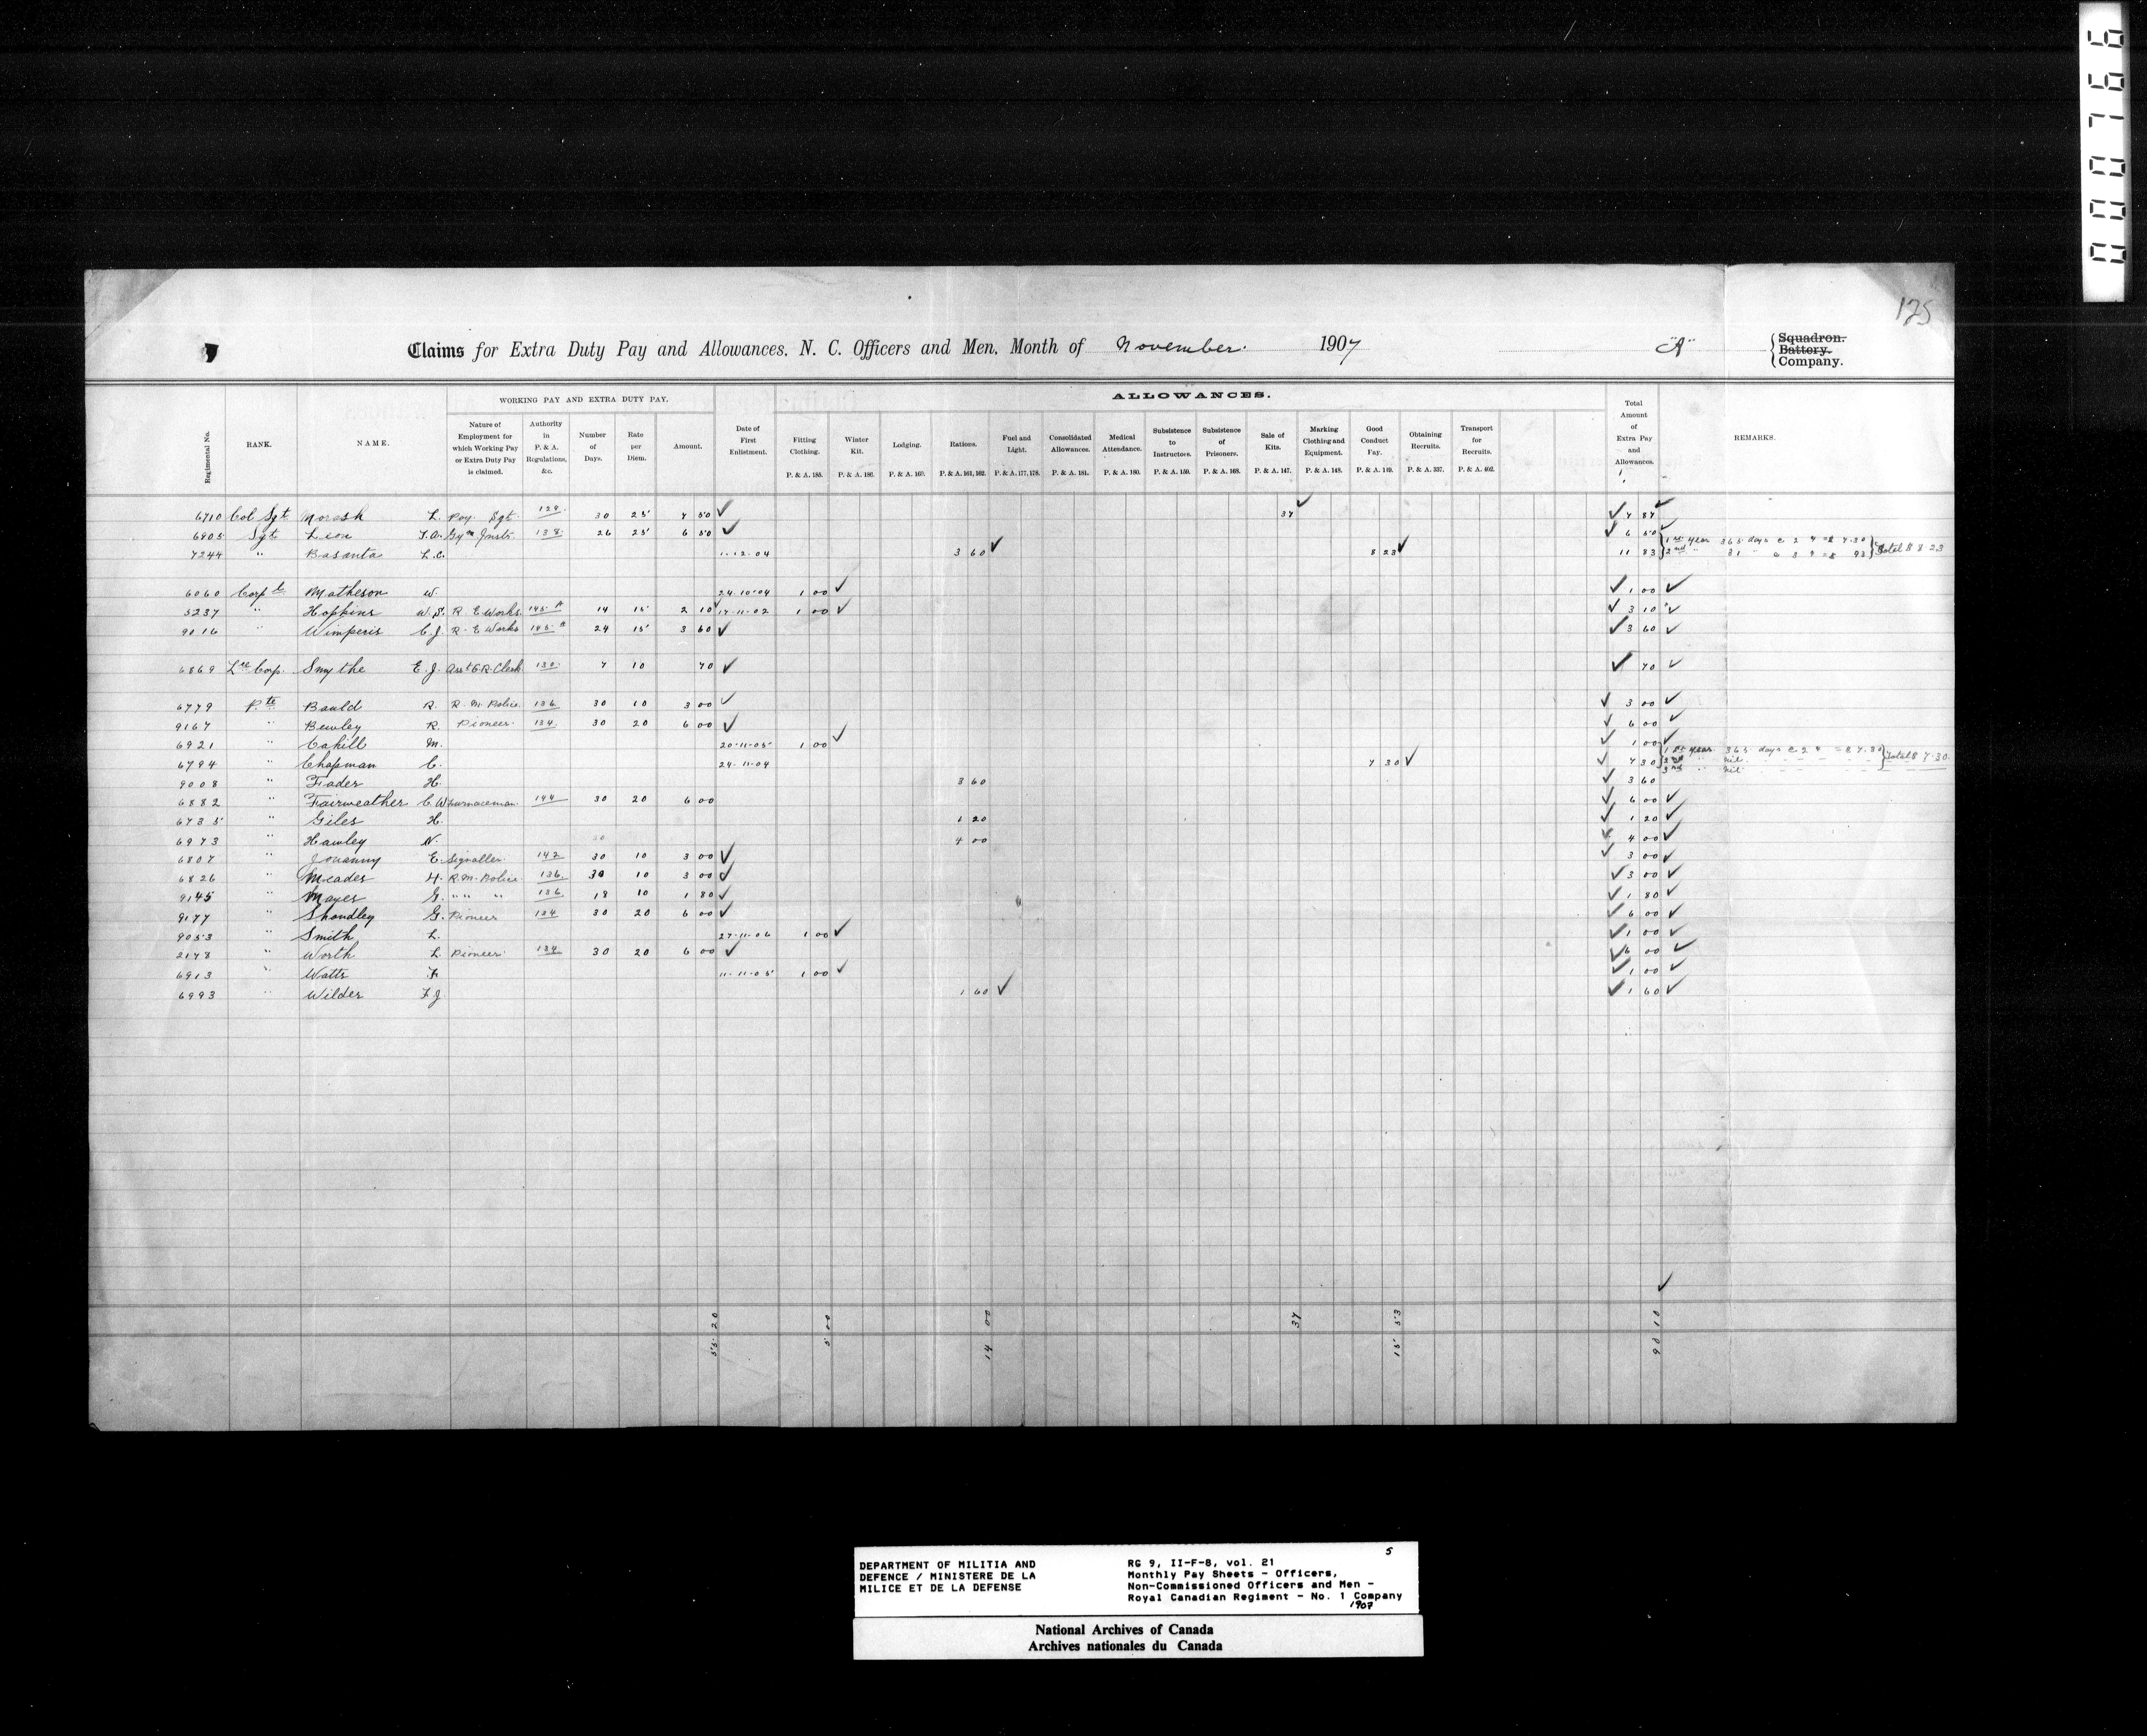 0000766
125
Claims for Extra Duty Pay and Allowances, N. C. Officers and Men, Month of November 1907 "A" Squadron. Battery. Company.
WORKING PAY AND EXTRA DUTY PAY.
ALLOWANCES.
Regimental No. RANK. NAME. Nature of Employment for which Working Pay or Extra Duty Pay is claimed. Authority in P. & A. Regulations, &c. Number of Days. Rate per Diem. Amount. Date of First Enlistment. Fitting Clothing. P. & A. 185. Winter Kit. P. & A. 186. Lodging. P. & A. 160. Rations. P. & A. 161, 162. Fuel and Light. P. & A. 177, 178. Consolidated Allowances. P. & A. 181. Medical Attendance. P. & A. 180. Subsistence to Instructors. P. & A. 159. Subsistence of Prisoners. P. & A. 168. Sale of Kits. P. & A. 147. Marking Clothing and Equipment. P. & A. 148. Good Conduct Pay. P. & A. 119. Obtaining Recruits. P. & A. 337. Transport for Recruits. P. & A. 402. Total Amount of Extra Pay and Allowances. REMARKS.
6710 Col Sgt L. Pay Sgt. 129 30 25 7 50 37 7 87
6905 Sgt Lieu T.A. Gym Instr. 138 26 25 6 50 6 50
7244 " Basanta L.C. 1-12-04 3 60 8 23 11 83 1st year 365 days @ 2¢ = $ 7.30 2nd " 31 " @ 3¢ = $ 93 Total $ 8.23
6060 Corpl Matheson W. 24-10-04 1 00 1 00
5237 " Hopkins W.S. R.E. Works 145 A 14 15 2 10 17-11-02 1 00 3 10
9016 " Wimperis C.J. R.E. Works 145 A 24 15 3 60 3 60
6869 Lce Corp. Smythe E.J. Asst O.R. Clerk 130 7 10 70 70
6779 Pte Bauld R. R.M. Police 136 30 10 3 00 3 00
9167 " Bewley R. Pioneer 134 30 20 6 00 6 00
6921 " Cahill M. 20-11-05 1 00 1 00
6794 " Chapman C. 24-11-04 7 30 7 30 1st year 365 days @ 2¢ = $ 7.30 2nd " nil 3rd " nil Total $ 7.30
9008 " Fader H. 3 60 3 60
6882 " Fairweather C.W. Furnaceman 144 30 20 6 00 6 00
6735 " Giles H. 1 20 1 20
6973 " Hawley N. 4 00 4 00
6807 " Jouanny E. Signaller 142 30 10 3 00 3 00
6826 " Meades H. R.M. Police 136 30 10 3 00 3 00
9145 " Mayes G. " " " 136 18 10 1 80 1 80
9177 " Shandley G. Pioneer 134 30 20 6 00 6 00
9053 " Smith L. 27-11-06 1 00 1 00
2178 " Worth L. Pioneer 134 30 20 6 00 6 00
6913 " Watts F. 11-11-05 1 00 1 00
6993 " Wilder F.J. 1 60 1 60
55 20 5 00 14 00 37 15 53 90 10
DEPARTMENT OF MILITIA AND
DEFENCE / MINISTERE DE LA
MILICE ET DE LA DEFENSE
5
RG 9, II-F-8, vol. 21
Monthly Pay Sheets - Officers,
Non-Commissioned Officers and Men -
Royal Canadian Regiment - No. 1 Company
1907
National Archives of Canada
Archives nationales du Canada